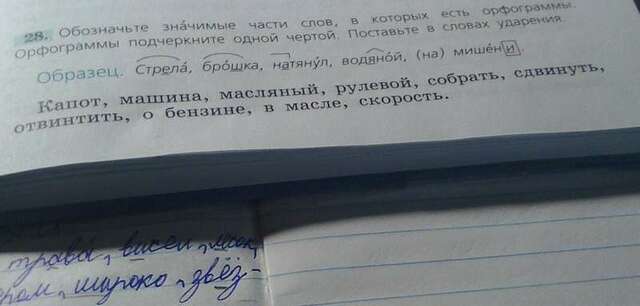 28. Обозначьте зна́чимые части слов, в которых есть орфограммы.
Орфограммы подчеркните одной чертой. Поставьте в словах ударения.
Образец. Стрела́, бро́шка, натяну́л, водяно́й, (на) мише́ни.
Капот, машина, масляный, рулевой, собрать, сдвинуть,
отвинтить, о бензине, в масле, скорость.
трава, висел,
широко, звёз-